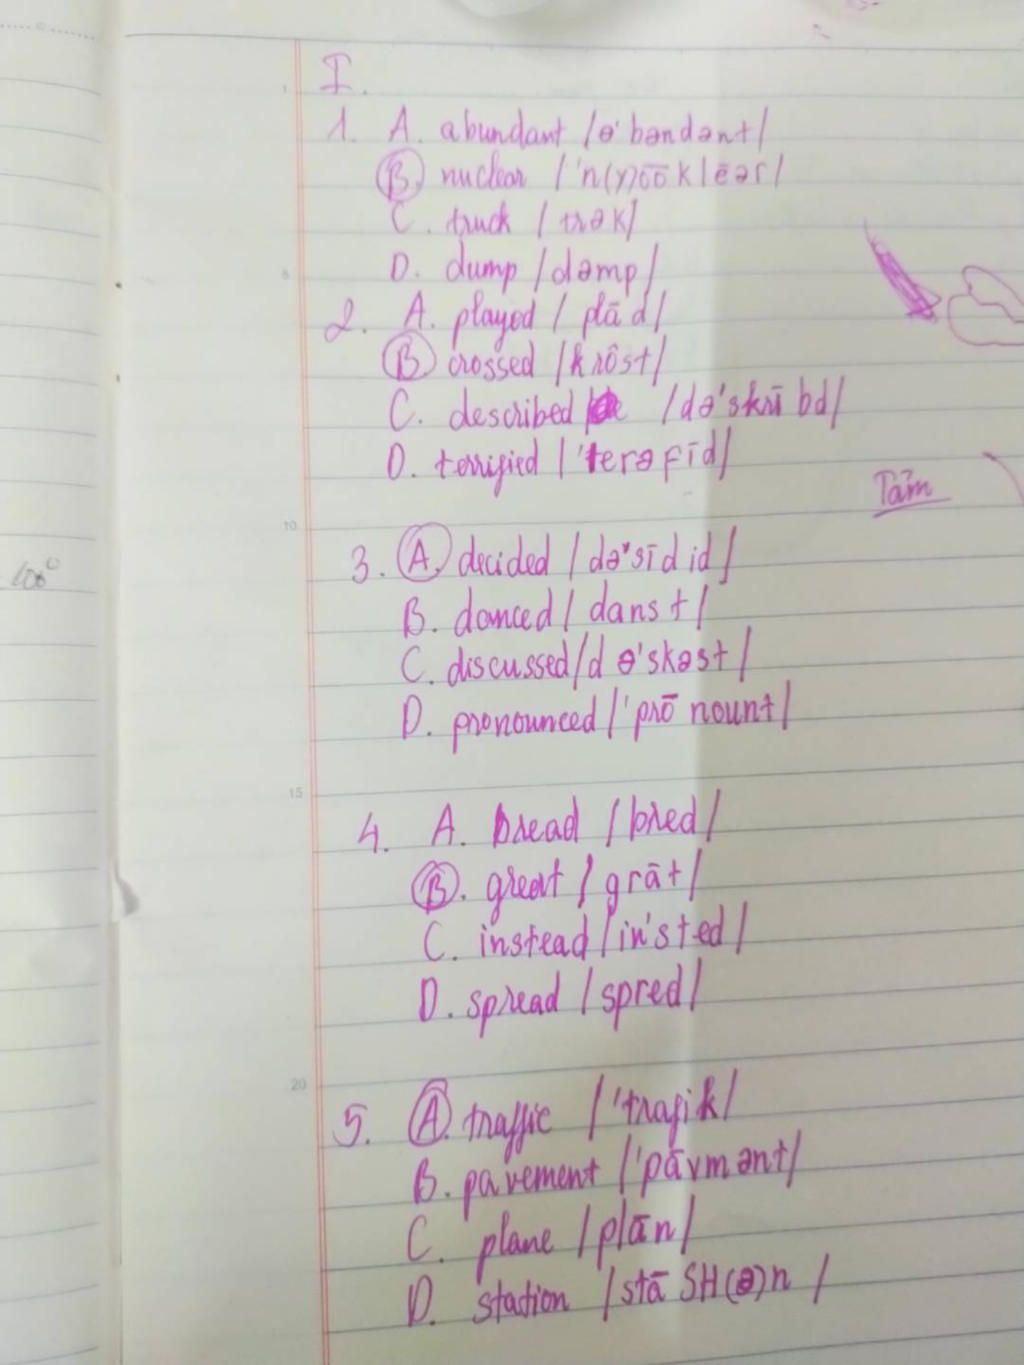 I.
1. A. abundant /ə'bəndənt/
B. nuclear /'n(y)o͞oklēər/
C. truck /trək/
D. dump /dəmp/
2. A. played /plād/
B. crossed /krôst/
C. described /də'skrībd/
D. terrified /'terəfīd/
Tâm
3. A. decided /də'sīdid/
100°
B. danced /danst/
C. discussed /də'skəst/
D. pronounced /'prōnount/
4. A. bread /bred/
B. great /grāt/
C. instead /in'sted/
D. spread /spred/
5. A. traffic /'trafik/
B. pavement /'pāvmənt/
C. plane /plān/
D. station /stāSH(ə)n/
1
5
10
15
20